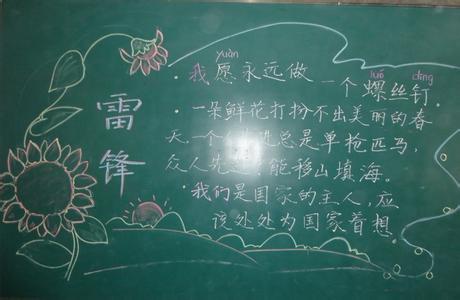 雷锋
yuàn luó dīng
·我愿永远做一个螺丝钉.
·一朵鲜花打扮不出美丽的春
天,一个 总是单枪匹马,
众人先 能移山填海。
·我们是国家的主人,应
该处处为国家着想.